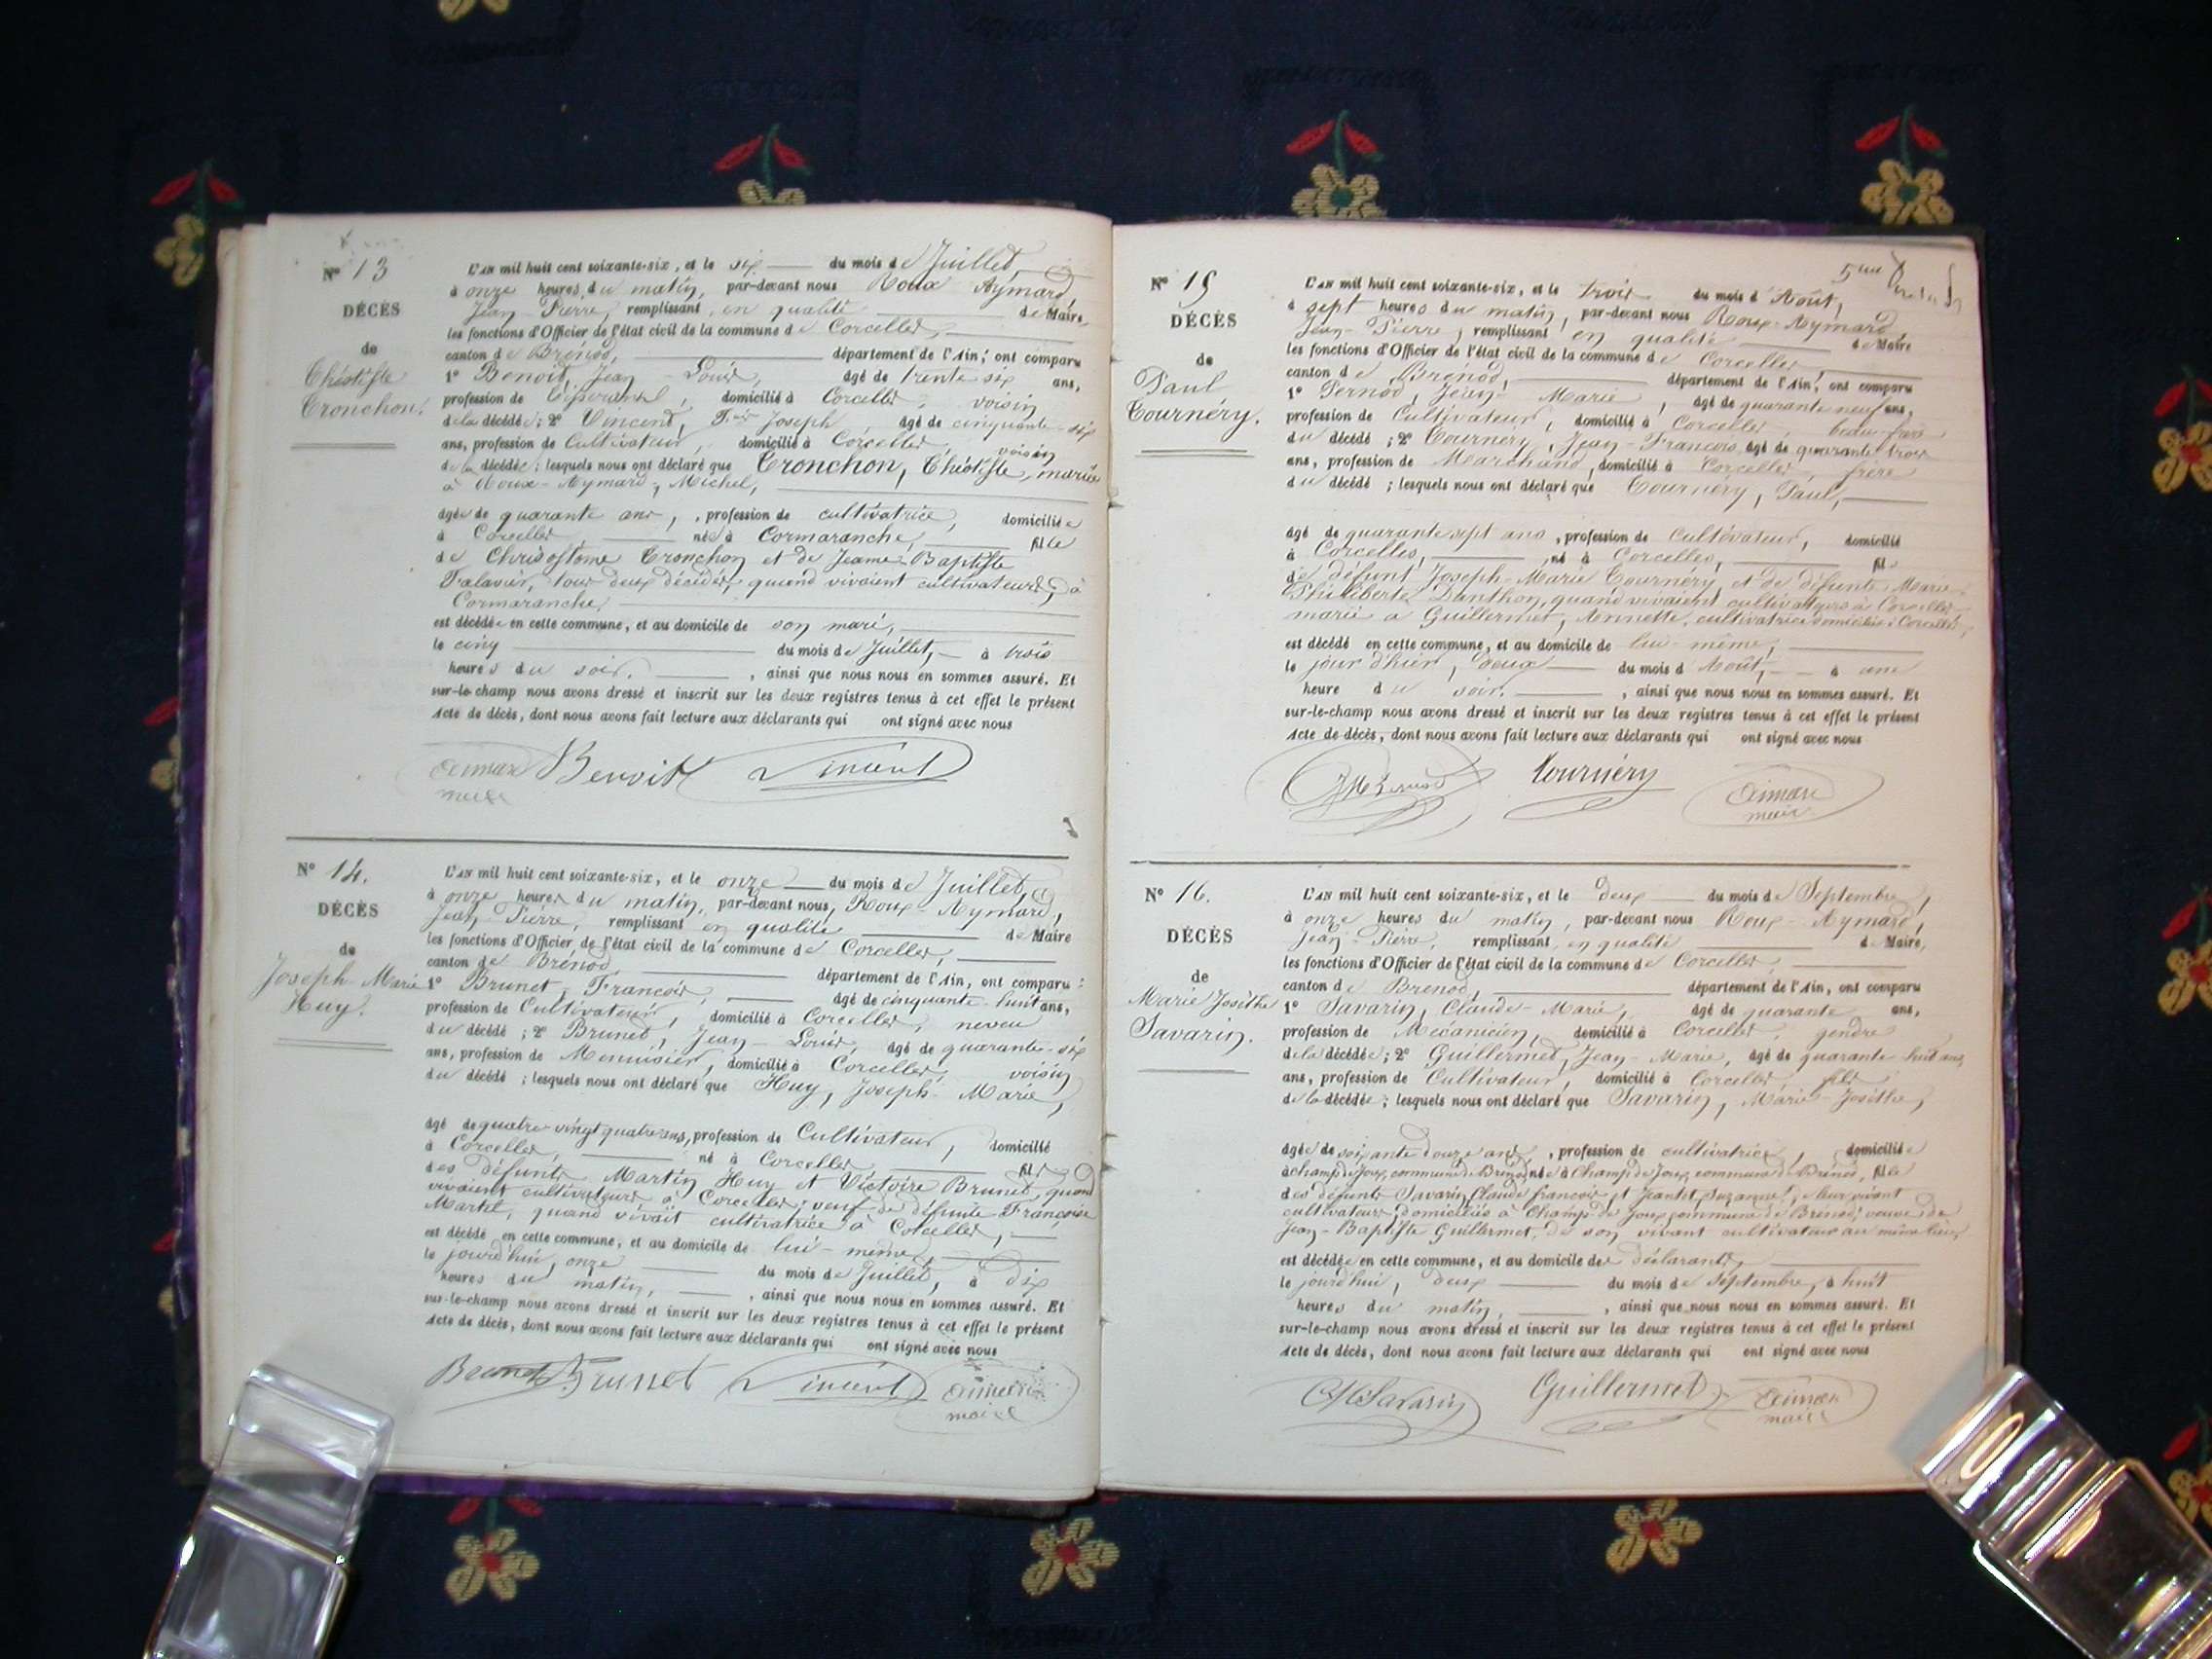 N° 13
DÉCÈS
de
Théotiste
Tronchon.
L'AN mil huit cent soixante-six, et le six du mois de Juillet,
à onze heures du matin, par-devant nous Roux Aymard,
Jean-Pierre, remplissant, en qualité de Maire,
les fonctions d'Officier de l'état civil de la commune de Corcelles,
canton de Brénod, département de l'Ain, ont comparu
1° Benoit, Jean-Louis, âgé de trente six ans,
profession de Tisserand, domicilié à Corcelles, voisin
de la décédée; 2° Vincent, Joseph, âgé de cinquante-six
ans, profession de Cultivateur, domicilié à Corcelles, voisin
de la décédée; lesquels nous ont déclaré que Tronchon, Théotiste, mariée
à Roux-Aymard, Michel,
âgée de quarante ans, profession de cultivatrice, domiciliée
à Corcelles, née à Cormaranche, fille
de Chrisostôme Tronchon et de Jeanne-Baptiste
tous deux décédés, quand vivaient cultivateurs, à
Cormaranche,
est décédée en cette commune, et au domicile de son mari,
le cinq du mois de Juillet, à trois
heures du soir, ainsi que nous nous en sommes assuré. Et
sur-le-champ nous avons dressé et inscrit sur les deux registres tenus à cet effet le présent
Acte de décès, dont nous avons fait lecture aux déclarants qui ont signé avec nous
Benoit Vincent
N° 14.
DÉCÈS
de
Joseph-Marie
Huy.
L'AN mil huit cent soixante-six, et le onze du mois de Juillet,
à onze heures du matin, par-devant nous, Roux-Aymard,
Jean-Pierre, remplissant en qualité de Maire
les fonctions d'Officier de l'état civil de la commune de Corcelles,
canton de Brénod, département de l'Ain, ont comparu:
1° Brunet, François, âgé de cinquante-huit ans,
profession de Cultivateur, domicilié à Corcelles, neveu
du décédé; 2° Brunet, Jean-Louis, âgé de quarante-six
ans, profession de Menuisier, domicilié à Corcelles, voisin
du décédé; lesquels nous ont déclaré que Huy, Joseph-Marie,
âgé de quatre-vingt quatre ans, profession de Cultivateur, domicilié
à Corcelles, né à Corcelles, fils
des défunts Martin Huy et Victoire Brunet, quand
vivaient cultivateurs à Corcelles; veuf de défunte Françoise
Martel, quand vivait cultivatrice à Corcelles,
est décédé en cette commune, et au domicile de lui-même,
le jourd'hui, onze du mois de Juillet, à dix
heures du matin, ainsi que nous nous en sommes assuré. Et
sur-le-champ nous avons dressé et inscrit sur les deux registres tenus à cet effet le présent
Acte de décès, dont nous avons fait lecture aux déclarants qui ont signé avec nous
Brunet Brunet Vincent
maire
5me
N° 15
DÉCÈS
de
Paul
Tournéry.
L'AN mil huit cent soixante-six, et le trois du mois d'Août,
à sept heures du matin, par-devant nous Roux-Aymard,
Jean-Pierre, remplissant en qualité de Maire
les fonctions d'Officier de l'état civil de la commune de Corcelles
canton de Brénod, département de l'Ain, ont comparu
1° Pernod, Jean-Marie, âgé de quarante neuf ans,
profession de Cultivateur, domicilié à Corcelles, beau-frère
du décédé; 2° Tournéry, Jean-François, âgé de quarante trois
ans, profession de Marchand, domicilié à Corcelles, frère
du décédé; lesquels nous ont déclaré que Tournéry, Paul,
âgé de quarante sept ans, profession de Cultivateur, domicilié
à Corcelles, né à Corcelles, fils
de défunt Joseph-Marie Tournéry et de défunte Marie-
Philiberte Danthon, quand vivaient cultivateurs à Corcelles,
marié à Guillermet, Annette, cultivatrice domiciliée à Corcelles,
est décédé en cette commune, et au domicile de lui-même,
le jour d'hier, deux du mois d'Août, à une
heure du soir, ainsi que nous nous en sommes assuré. Et
sur-le-champ nous avons dressé et inscrit sur les deux registres tenus à cet effet le présent
Acte de décès, dont nous avons fait lecture aux déclarants qui ont signé avec nous
JM Pernod Tournéry
N° 16.
DÉCÈS
de
Marie Josèthe
Savarin.
L'AN mil huit cent soixante-six, et le deux du mois de Septembre,
à onze heures du matin, par-devant nous Roux-Aymard,
Jean-Pierre, remplissant, en qualité de Maire,
les fonctions d'Officier de l'état civil de la commune de Corcelles,
canton de Brénod, département de l'Ain, ont comparu
1° Savarin, Claude-Marie, âgé de quarante ans,
profession de Mécanicien, domicilié à Corcelles, gendre
de la décédée; 2° Guillermet, Jean-Marie, âgé de quarante huit ans,
ans, profession de Cultivateur, domicilié à Corcelles, fils
de la décédée; lesquels nous ont déclaré que Savarin, Marie-Josèthe,
âgée de soixante douze ans, profession de cultivatrice, domiciliée
à champ de Joux, commune de Brénod née à Champ de Joux, commune de Brénod, fille
des défunts Savarin, Claude François et Jeantet, Suzanne, leur vivant
cultivateurs domiciliés à Champ de Joux, commune de Brénod, veuve de
Jean-Baptiste Guillermet, de son vivant cultivateur au même lieu,
est décédée en cette commune, et au domicile des déclarants,
le jourd'hui, deux du mois de Septembre, à huit
heures du matin, ainsi que nous nous en sommes assuré. Et
sur-le-champ nous avons dressé et inscrit sur les deux registres tenus à cet effet le présent
Acte de décès, dont nous avons fait lecture aux déclarants qui ont signé avec nous
CM Savarin Guillermet
maire